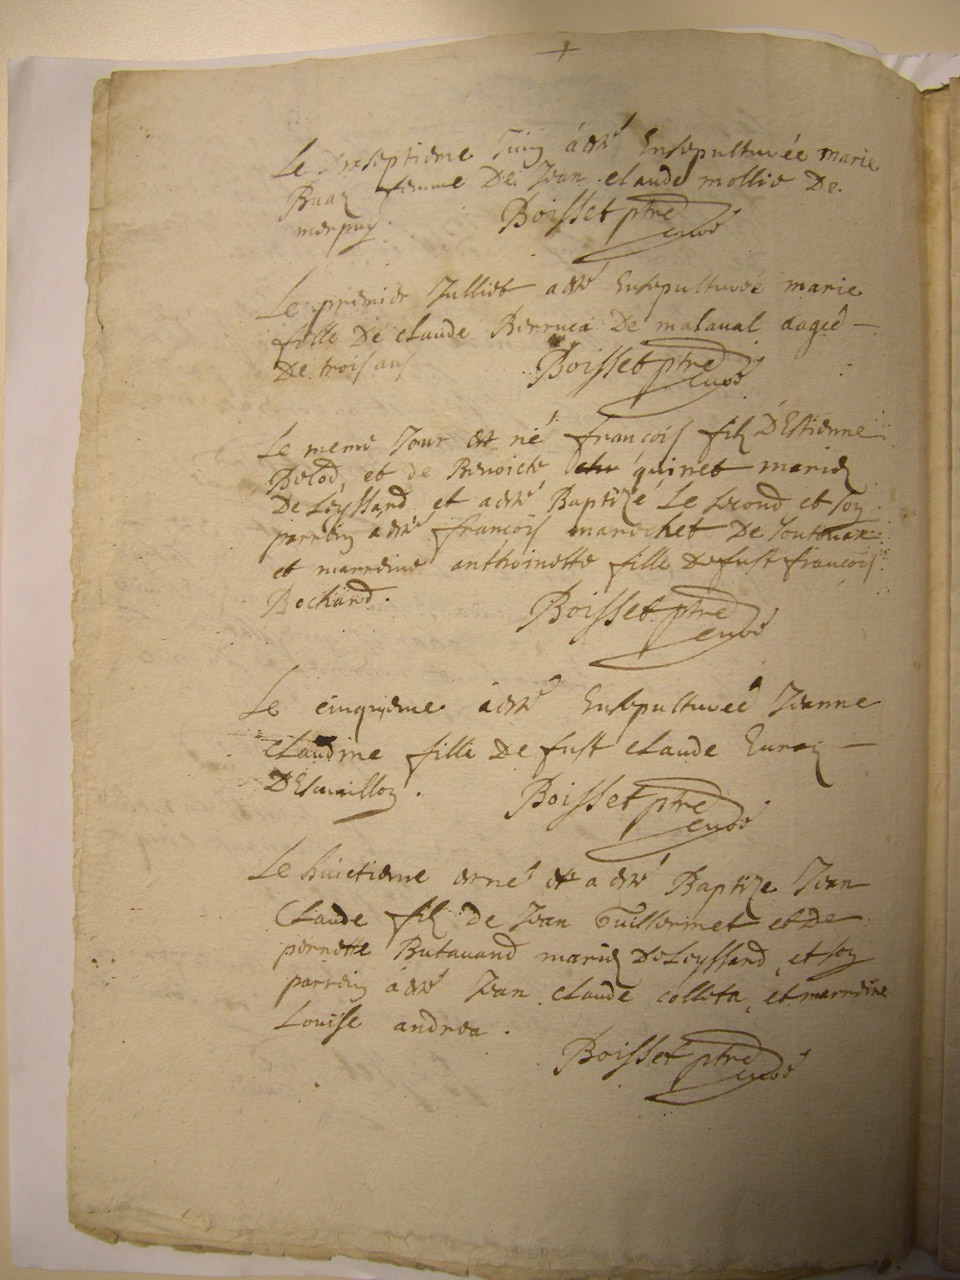 Le dixseptieme Juing à esté Ensepulturée marie
Buaz femme De Jean claude mollie De
merpuy. Boisset ptre
curé
Le premier Julliet a esté Ensepulturée marie
fille De claude Berruca De malaual aagée
De trois ans Boisset ptre
curé
Le meme Jour est né francois filz D'Estienne
Belod, et de Benoicte quinet mariez
De Leyssard et a esté Baptizé Le second et son
parrein a esté francois marechet De
et marreine anthoinette fille de fust francois
Bochard. Boisset ptre
curé
Le cinquieme à esté Ensepulturée Jeanne
claudine fille De fust claude
Boisset ptre
curé
Le huictieme et a esté Baptize Jean
Claude filz de Jean Guillermet et de
pernette Butauand mariez De Leyssard, et son
parrein à esté Jean claude colleta, et marreine
Louise andrea.
Boisset ptre
curé